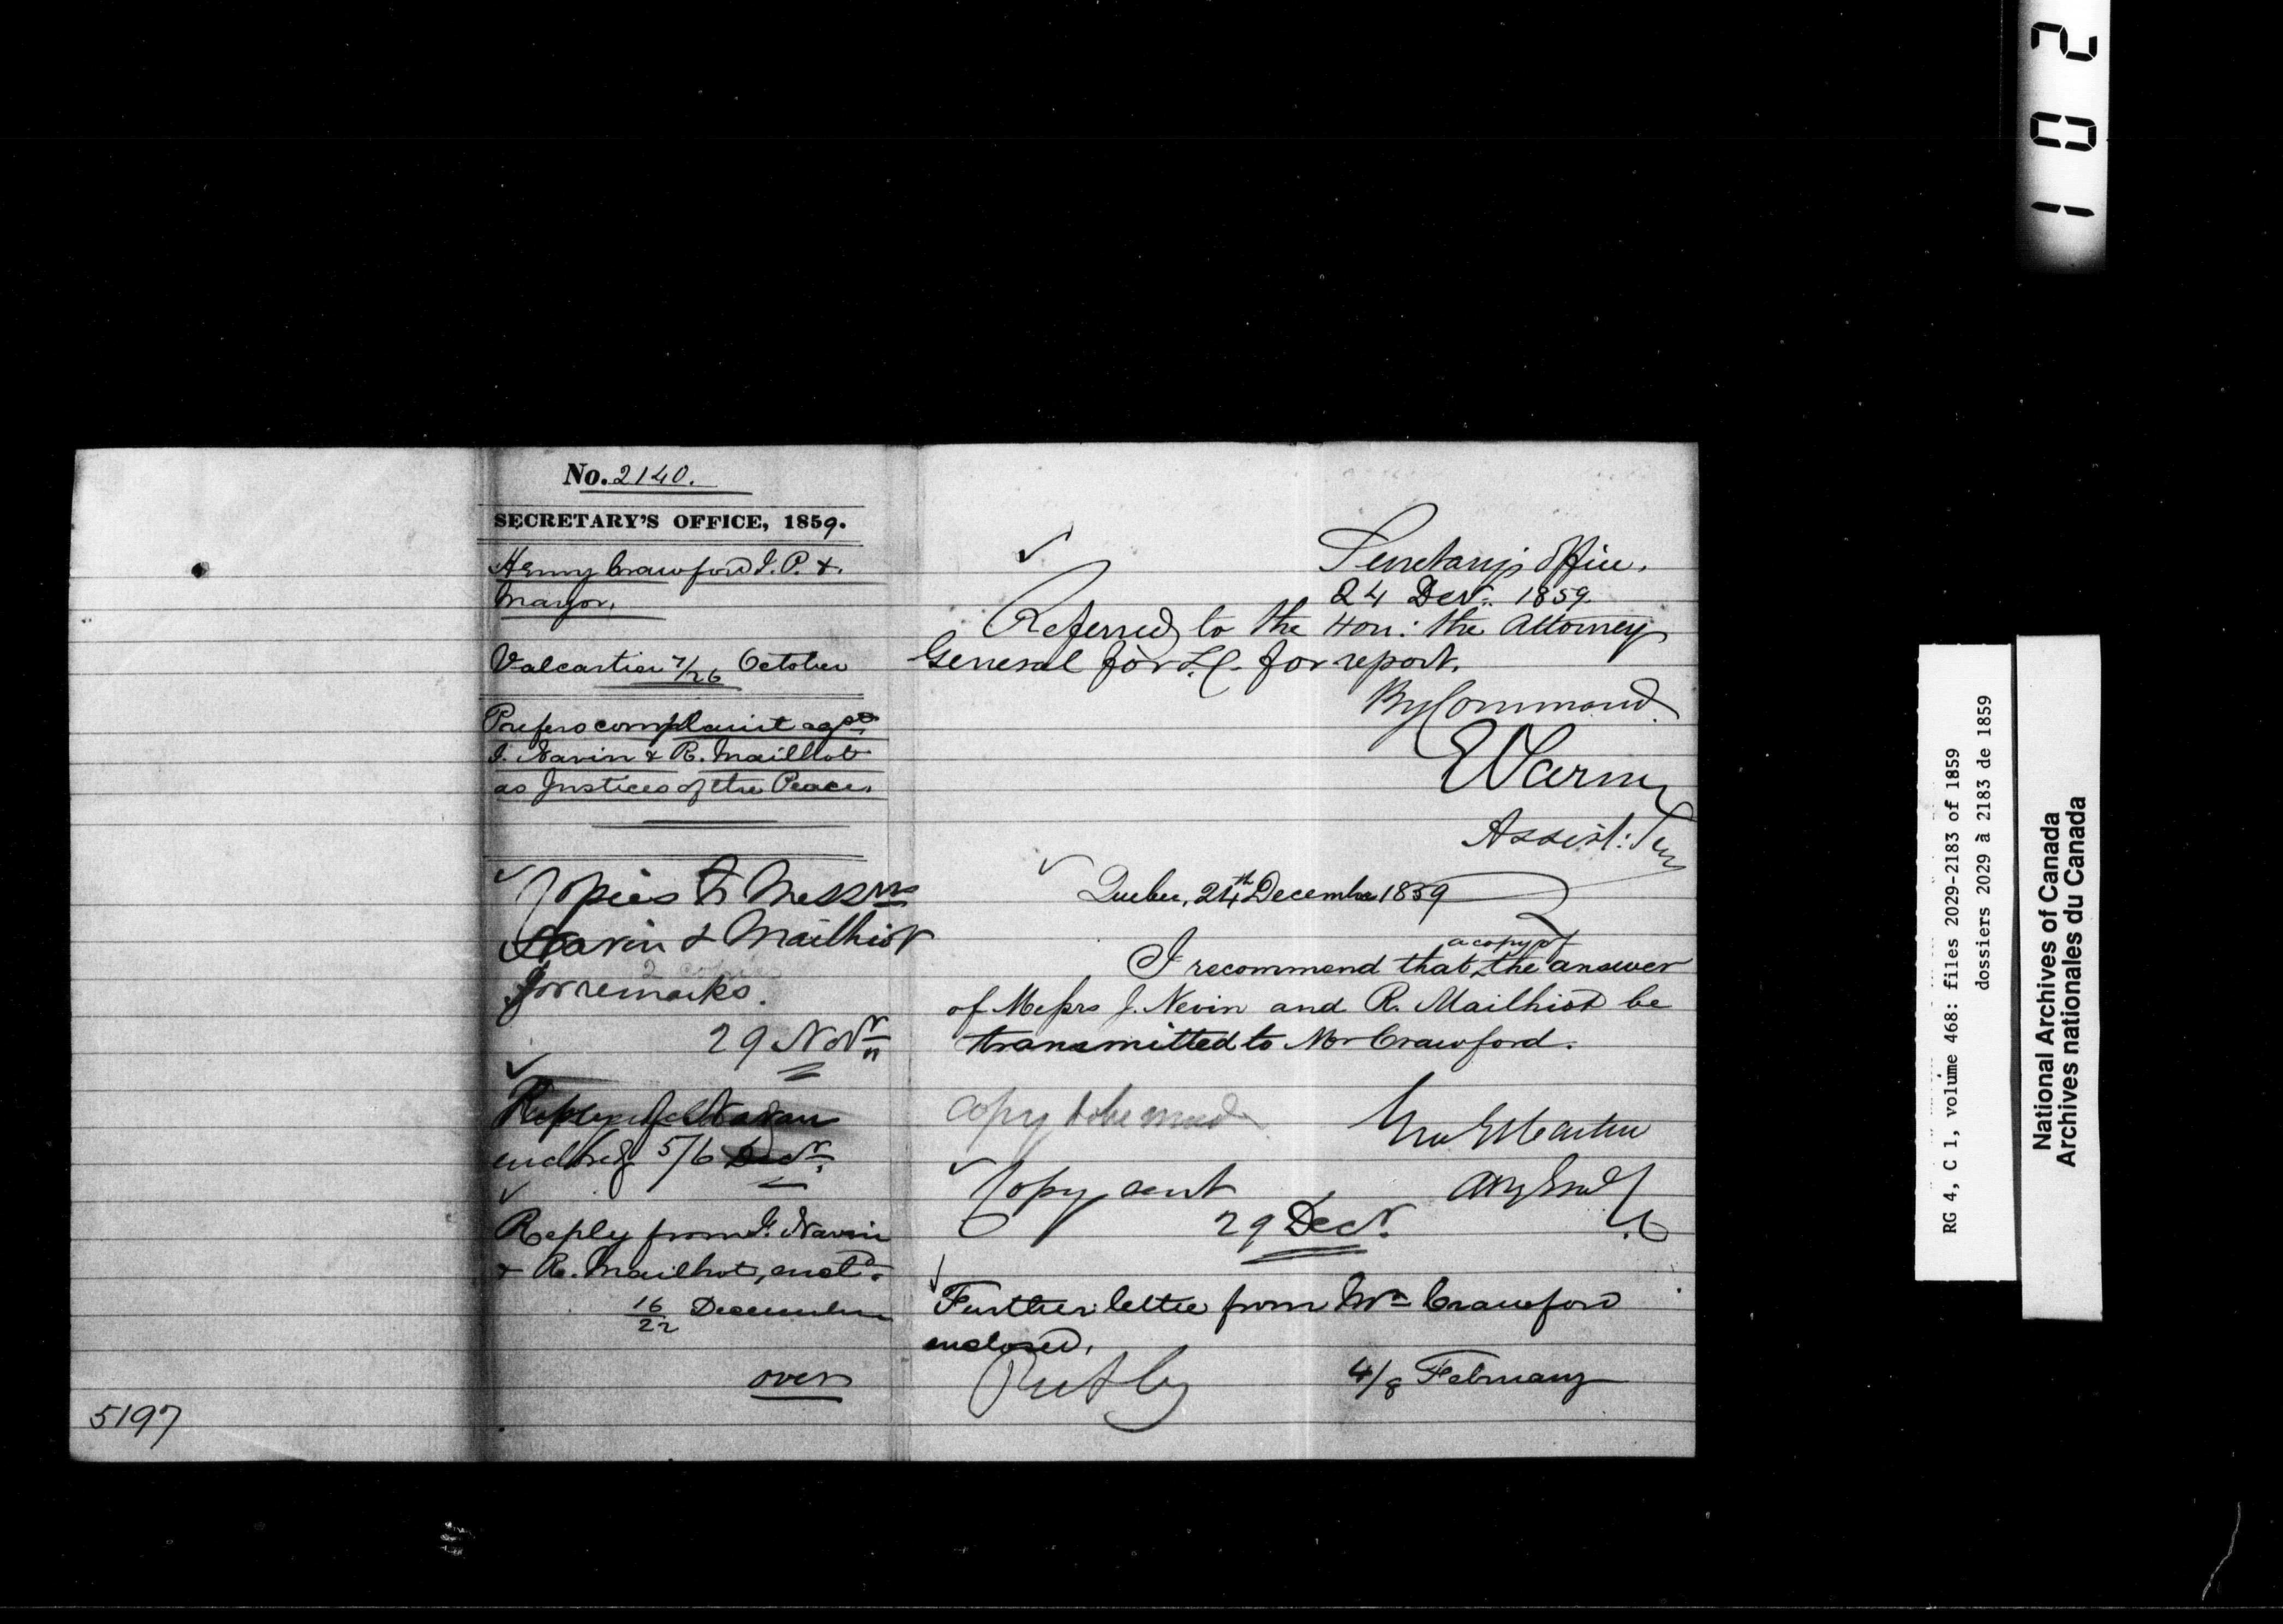 No. 2140.
SECRETARY'S OFFICE, 1859.
Henry Crawford J.P. &
Mayor.
Valcartier 7/26 October
Prefers complaint agst
J. Navin & R. Mailhot
as Justices of the Peace.
Copies to Messrs
Navin & Mailhiot
2 copies
for remarks.
29 Novr
enclosed 5/6 Decr.
Reply from J. Navin
& R. Mailhot, encld.
16/22 December
over
5197
Secretary's Office.
24 Decr. 1859.
Referred to the Hon: the Attorney
General for L.C. for report.
By Command.
Assist: Secy
Quebec, 24th December 1859
a copy of
I recommend that the answer
of Messrs J. Nevin and R. Mailhiot be
transmitted to Mr Crawford.
Copy to be made
Geo Et Cartier
Atty Genl
L.C.
Copy sent
29 Decr.
Further letter from Mr Crawford
enclosed.
4/8 February
Put by
102
RG 4, C 1, volume 468: files 2029-2183 of 1859
dossiers 2029 à 2183 de 1859
National Archives of Canada
Archives nationales du Canada